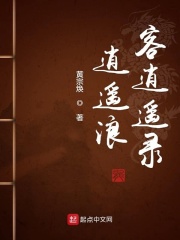 逍遥浪
客逍遥录
黄宗焕 ◎ 著
起点中文网